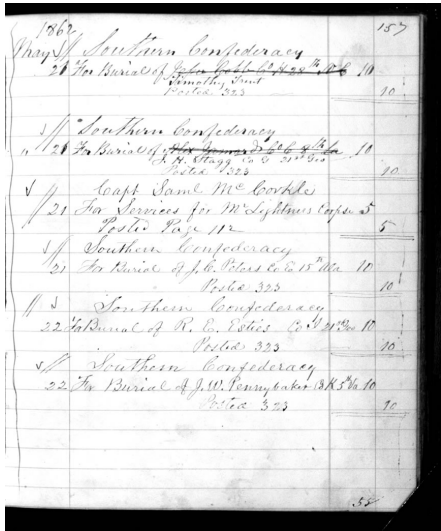 1862 157
May Southern Confederacy
21 For Burial of John Cobb Co H 28th N C 10
Timothy Trent
Posted 323 10
Southern Confederacy
" 21 For Burial of 10
J. H. Stagg Co G 21st Geo
Posted 323 10
Capt Saml McCorkle
21 For Services for Mr Corpse 5
Posted Page 112 5
Southern Confederacy
21 For Burial of J. C. Peters Co E 15th Ala 10
Posted 323 10
Southern Confederacy
22 For Burial of R. E. Estics Co 21st Geo 10
Posted 323 10
Southern Confederacy
22 For Burial of J. W. Pennybaker K 5th Va 10
Posted 323 10
55